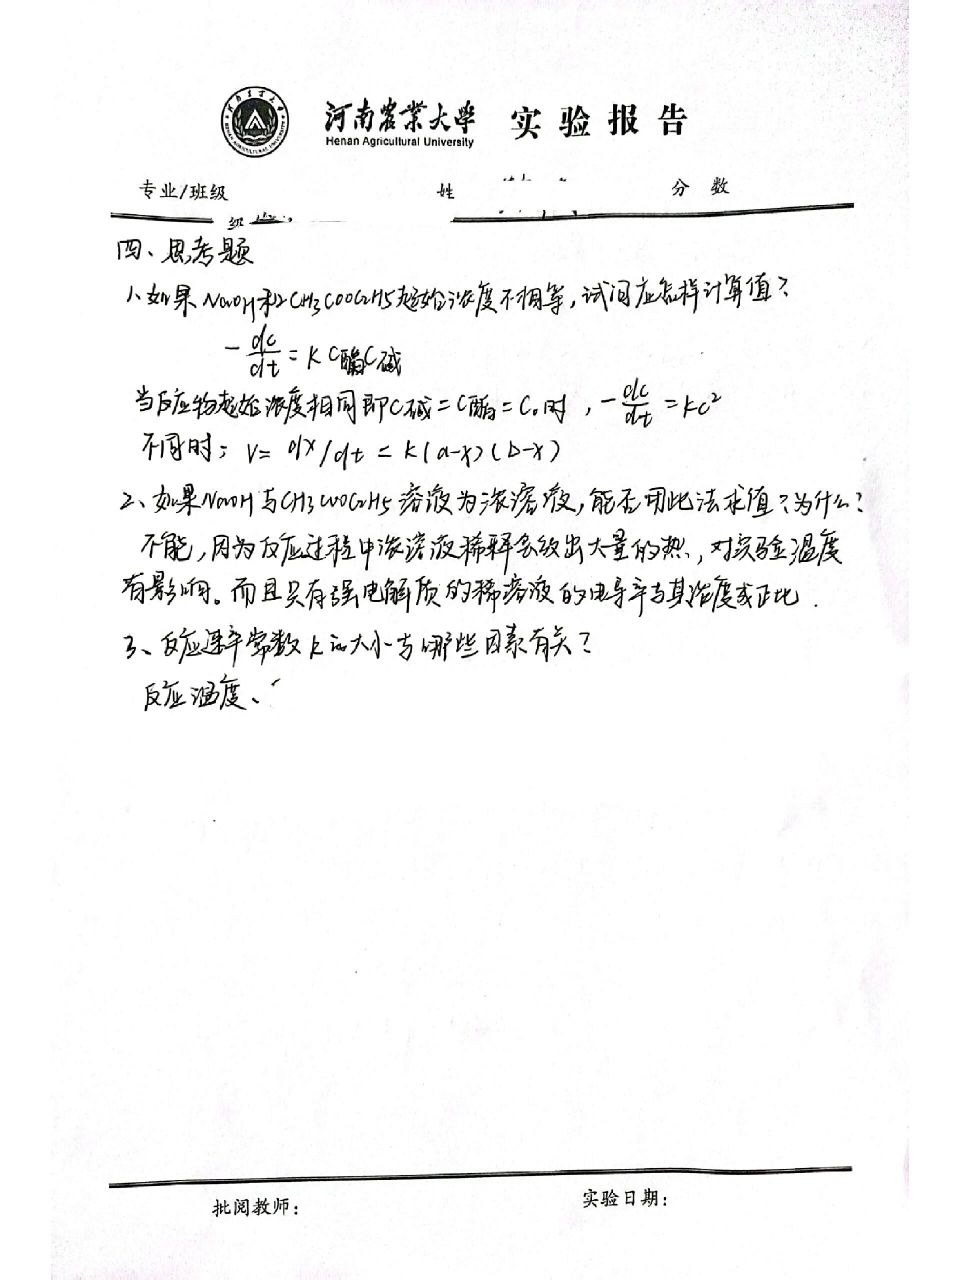 河南农业大学 实验报告
Henan Agricultural University
专业/班级 姓 分 数
级
四、思考题
1、如果NaOH和CH3COOC2H5起始浓度不相等,试问应怎样计算值?
-dc/dt = k C酯C碱
当反应物起始浓度相同即C碱=C酯=C0时,-dc/dt=kc²
不同时: V= dx/dt = k(a-x)(b-x)
2、如果NaOH与CH3COOC2H5溶液为浓溶液,能否用此法求值?为什么?
不能,因为反应过程中浓溶液稀释会放出大量的热,对实验温度
有影响。而且只有强电解质的稀溶液的电导率与其浓度成正比.
3、反应速率常数k的大小与哪些因素有关?
反应温度、
批阅教师: 实验日期: